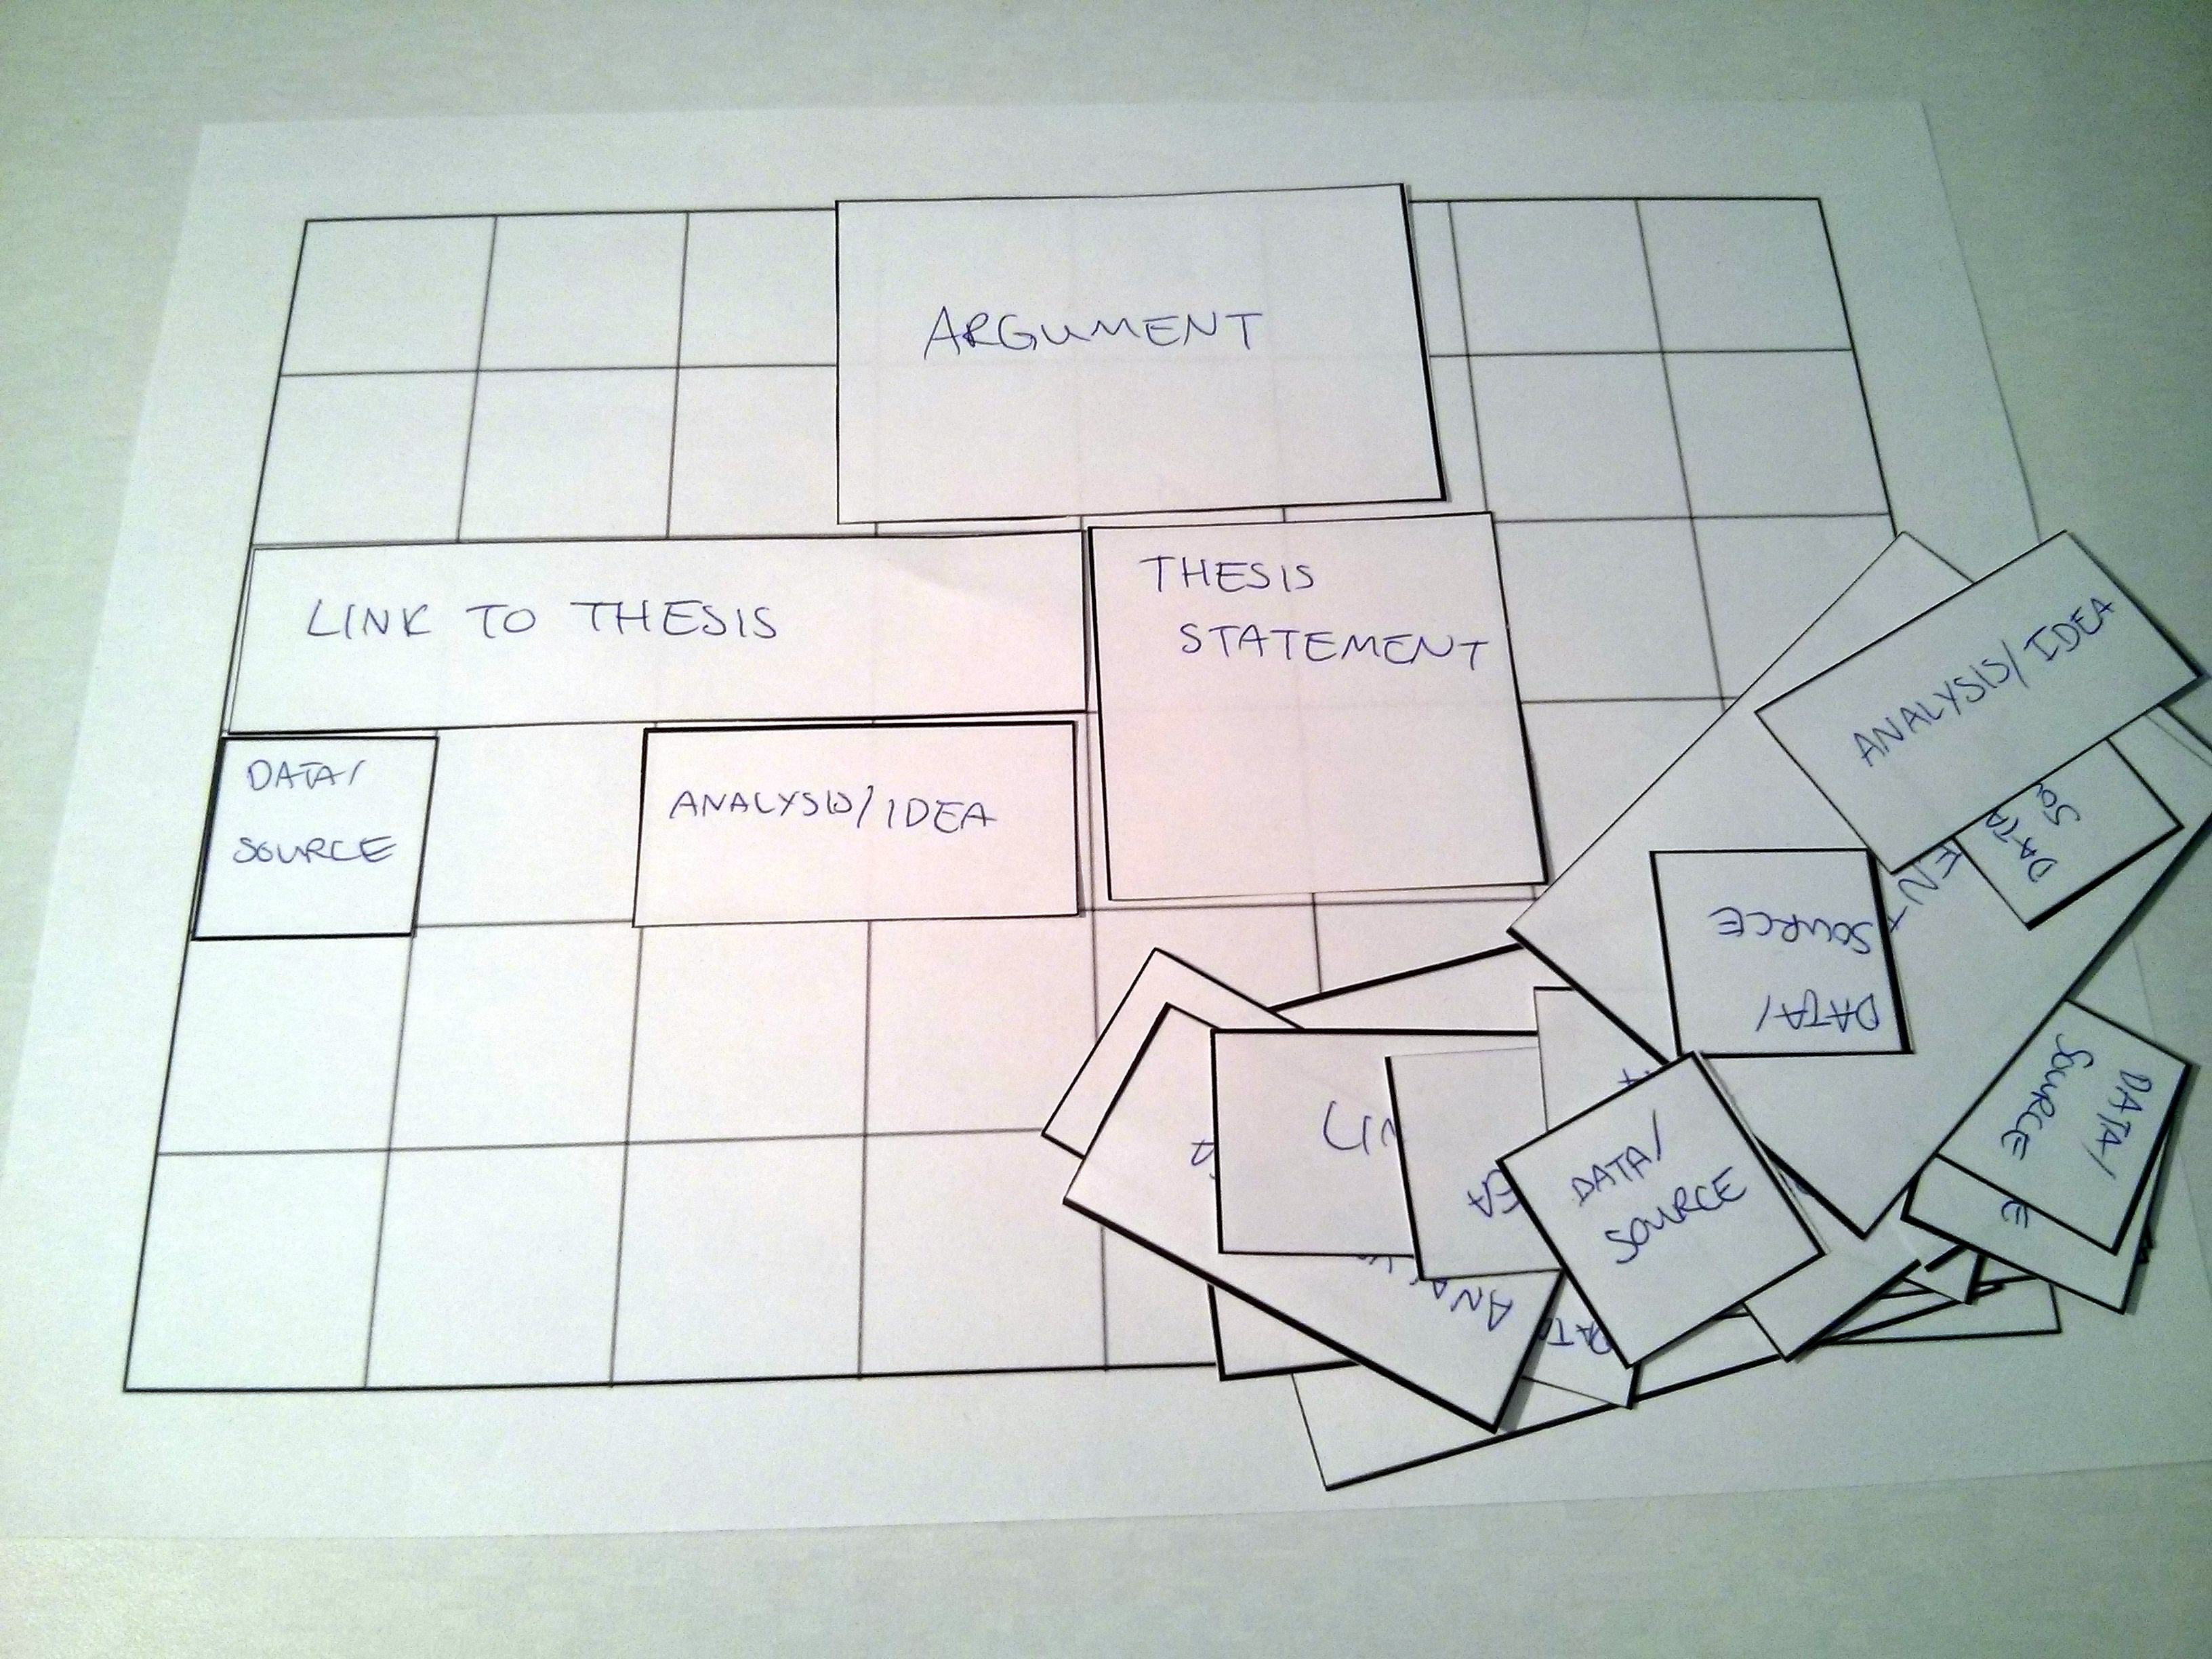 ARGUMENT
LINK TO THESIS
THESIS
STATEMENT
DATA/
SOURCE
ANALYSIS/IDEA
ANALYSIS/IDEA
DATA/
SOURCE
DATA/
SOURCE
DATA/
SOURCE